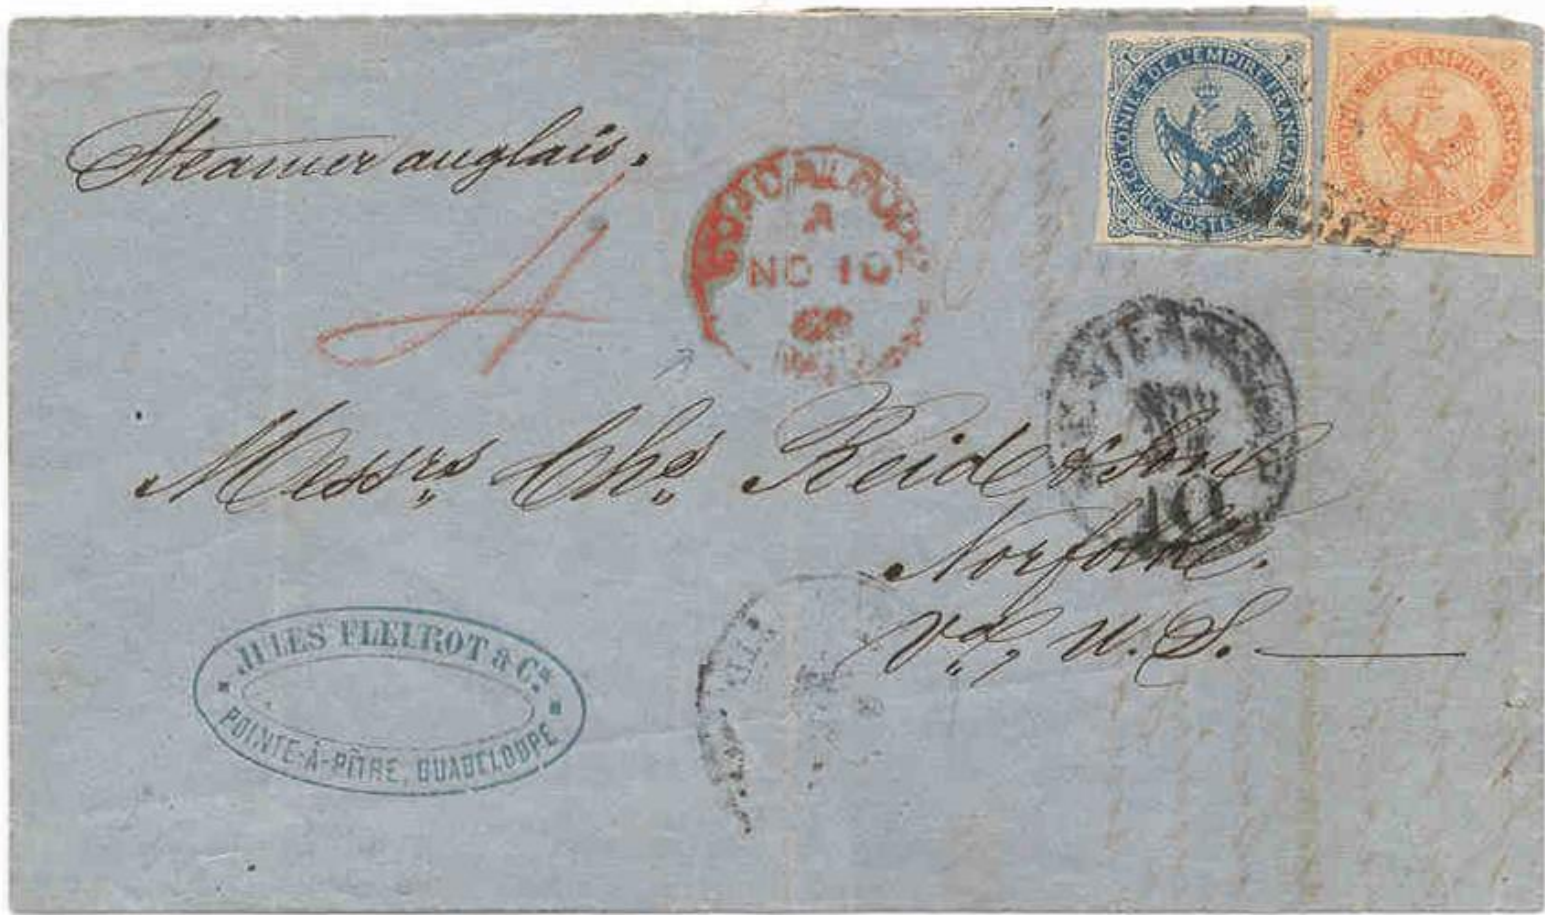 COLONIES DE L'EMPIRE FRANCAIS
POSTES
COLONIES DE L'EMPIRE FRANCAIS
POSTES
Steamer anglais.
4
GUADALOUPE
A
NO 10
68
Messrs Chs Reid & Sons
10
Norfolk.
Va, U.S.
JULES FLEUROT & Cie
POINTE-À-PITRE, GUADELOUPE